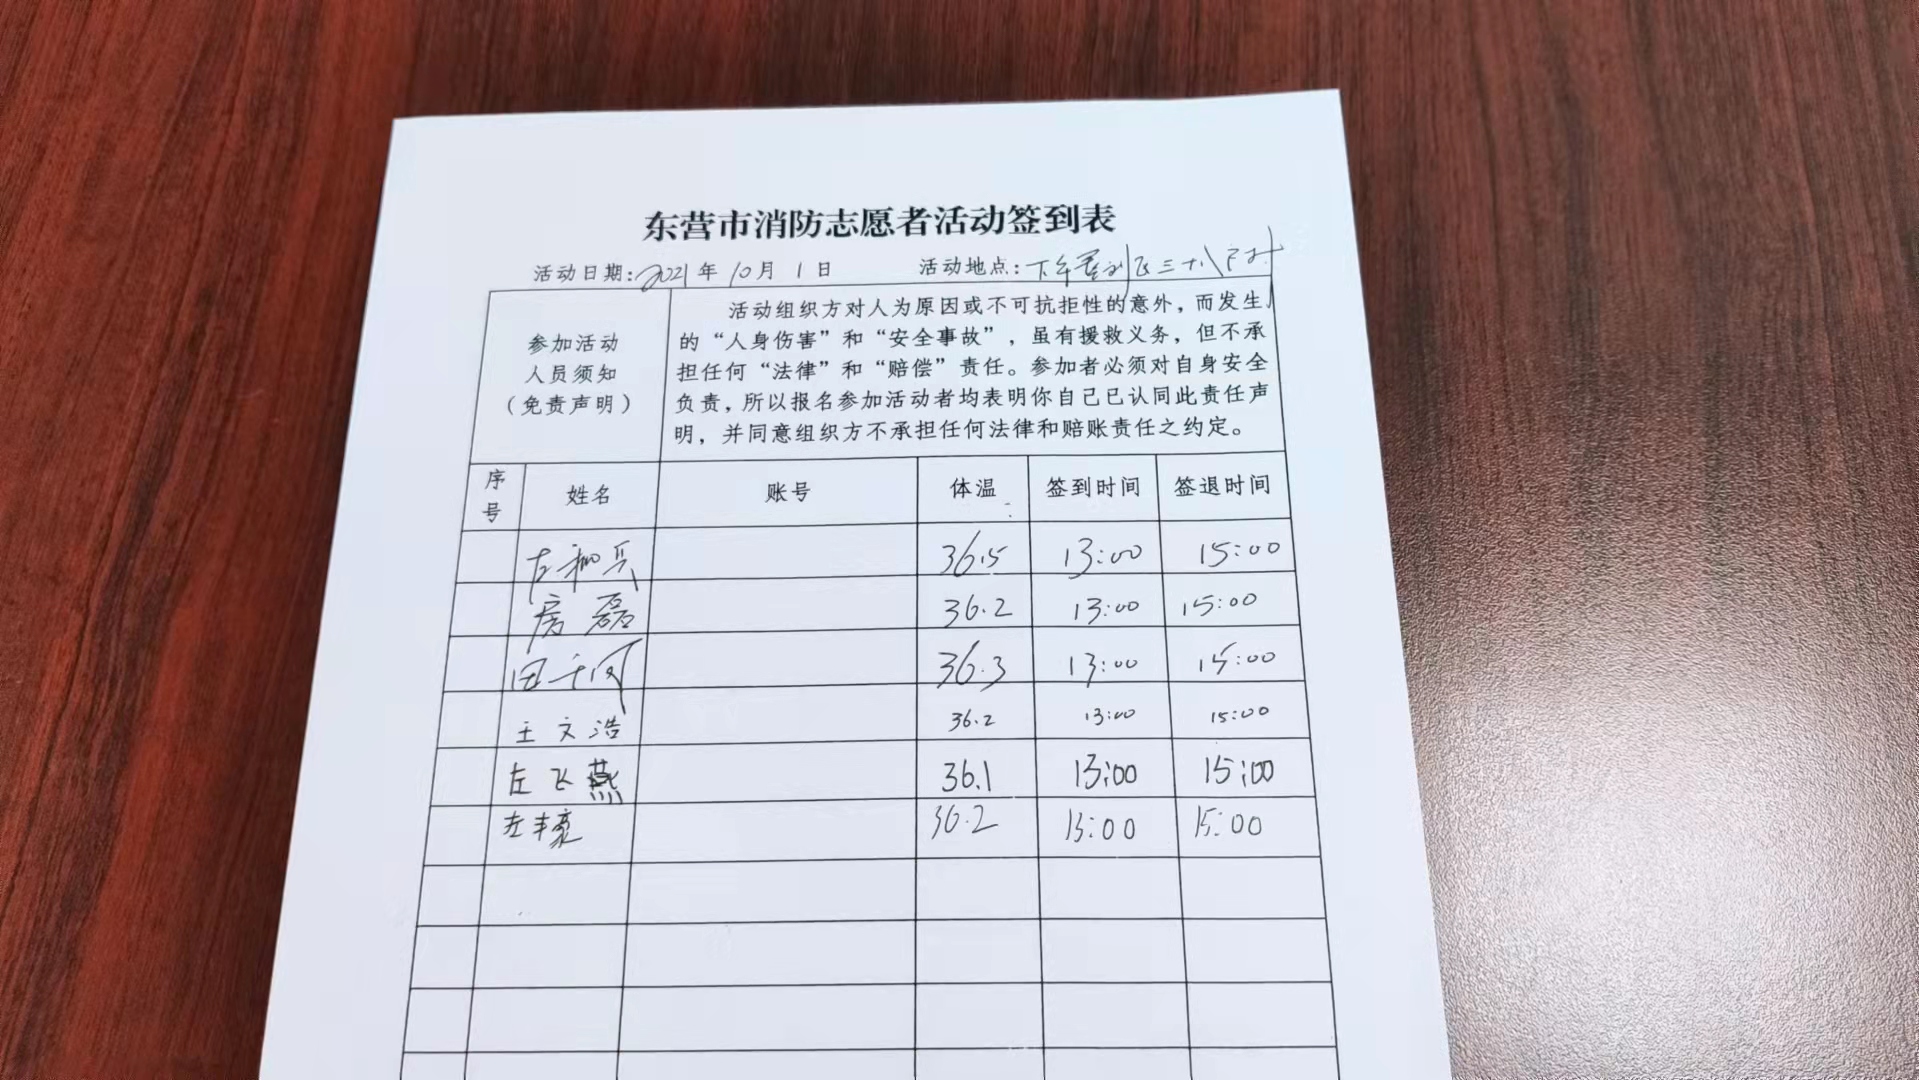 东营市消防志愿者活动签到表
活动日期:2021年10月1日 活动地点:三十八户村
参加活动
人员须知
(免责声明)
活动组织方对人为原因或不可抗拒性的意外,而发生
的“人身伤害”和“安全事故”,虽有援救义务,但不承
担任何“法律”和“赔偿”责任。参加者必须对自身安全
负责,所以报名参加活动者均表明你自己已认同此责任声
明,并同意组织方不承担任何法律和赔账责任之约定。
序号 姓名 账号 体温 签到时间 签退时间
36.5 13:00 15:00
房磊 36.2 13:00 15:00
田千河 36.3 13:00 15:00
王文浩 36.2 13:00 15:00
左飞燕 36.1 13:00 15:00
左丰豪 36.2 13:00 15:00